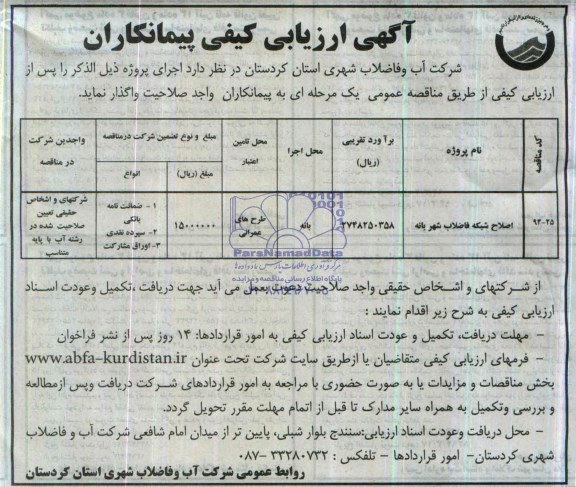 آگهی ارزیابی کیفی پیمانکاران
شرکت آب وفاضلاب شهری استان کردستان در نظر دارد اجرای پروژه ذیل الذکر را پس از
ارزیابی کیفی از طریق مناقصه عمومی یک مرحله ای به پیمانکاران واجد صلاحیت واگذار نماید.
کد مناقصه
نام پروژه
برآورد تقریبی (ریال)
محل اجرا
محل تامین اعتبار
مبلغ و نوع تضمین شرکت درمناقصه
مبلغ (ریال)
انواع
واجدین شرکت در مناقصه
۹۴-۲۵
اصلاح شبکه فاضلاب شهر بانه
۲۷۳۸۲۵۰۳۵۸
بانه
طرح های عمرانی
۱۵۰۰۰۰۰۰
۱- ضمانت نامه بانکی
۲- سپرده نقدی
۳- اوراق مشارکت
شرکتهای و اشخاص حقیقی تعیین صلاحیت شده در رشته آب با پایه متناسب
ParsNamadData
پایگاه اطلاع رسانی مناقصه و مزایده
از شرکتهای و اشخاص حقیقی واجد صلاحیت دعوت بعمل می آید جهت دریافت ،تکمیل وعودت اسناد
ارزیابی کیفی به شرح زیر اقدام نمایند :
– مهلت دریافت، تکمیل و عودت اسناد ارزیابی کیفی به امور قراردادها: ۱۴ روز پس از نشر فراخوان
– فرمهای ارزیابی کیفی متقاضیان یا ازطریق سایت شرکت تحت عنوان www.abfa-kurdistan.ir
بخش مناقصات و مزایدات یا به صورت حضوری با مراجعه به امور قراردادهای شرکت دریافت وپس ازمطالعه
و بررسی وتکمیل به همراه سایر مدارک تا قبل از اتمام مهلت مقرر تحویل گردد.
– محل دریافت وعودت اسناد ارزیابی:سنندج بلوار شبلی، پایین تر از میدان امام شافعی شرکت آب و فاضلاب
شهری کردستان- امور قراردادها – تلفکس : ۳۳۲۸۰۷۳۲ -۰۸۷
روابط عمومی شرکت آب وفاضلاب شهری استان کردستان